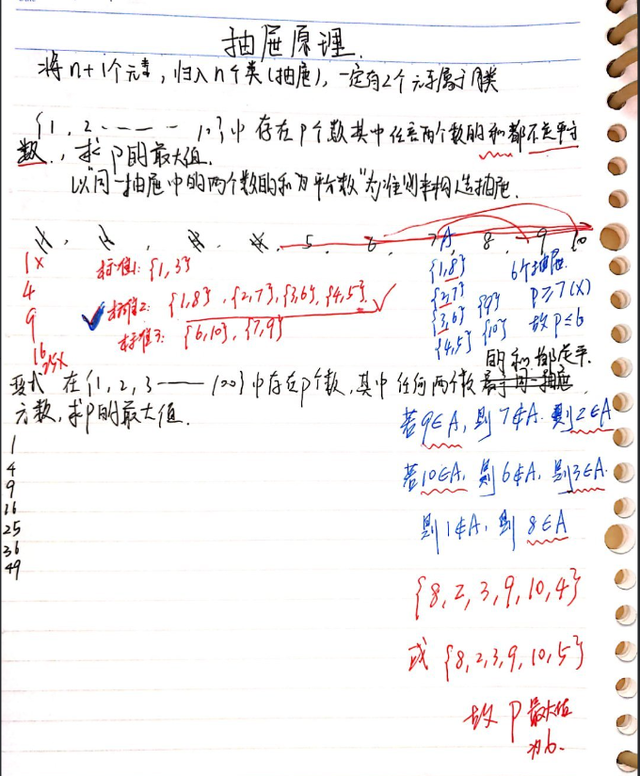 抽屉原理.
将 n+1个元素, 归入 n个类(抽屉), 一定有2个元素属于同类
{1, 2 ------ 10}中 存在P个数其中任意两个数的和都不是平方
数, 求P的最大值.
以"同一抽屉中的两个数的和为平方数"为准则来构造抽屉.
5 6 7 8 9 10
A
1×
4
9
16
25×
标准1: {1,3}
标准2: {1,8}, {2,7}, {3,6}, {4,5}
标准3: {6,10}, {7,9}
{1,8}
{2,7}
{3,6} {9}
{4,5} {10}
6个抽屉
P≥7(×)
故P≤6
变式 在{1, 2, 3 —— 100}中存在P个数, 其中任何两个数的和都是平
方数, 求P的最大值.
1
4
9
16
25
36
49
若9∈A, 则7∉A. 则2∈A
若10∈A, 则6∉A, 则3∈A.
则1∉A, 则 8∈A
{8, 2, 3, 9, 10, 4}
或 {8, 2, 3, 9, 10, 5}
故 P 最大值
为6.